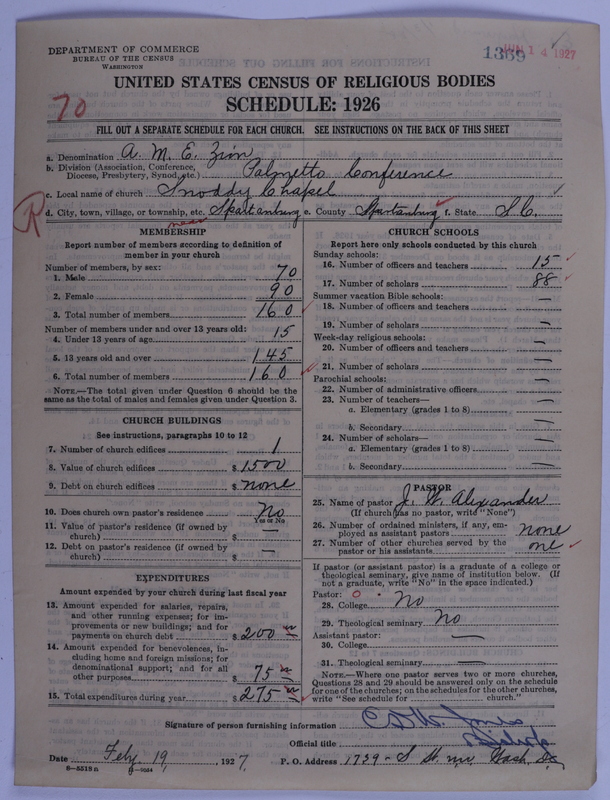 DEPARTMENT OF COMMERCE
BUREAU OF THE CENSUS
WASHINGTON
1369 JUN 14 1927
UNITED STATES CENSUS OF RELIGIOUS BODIES
SCHEDULE: 1926
70
FILL OUT A SEPARATE SCHEDULE FOR EACH CHURCH. SEE INSTRUCTIONS ON THE BACK OF THIS SHEET
a. Denomination A. M. E. Zion
b. Division (Association, Conference, Diocese, Presbytery, Synod, etc.) Palmetto Conference
c. Local name of church Snoddy Chapel
R
d. City, town, village, or township, etc. near Spartanburg e. County Spartanburg f. State S.C.
MEMBERSHIP
Report number of members according to definition of
member in your church
Number of members, by sex:
1. Male 70
2. Female 90
3. Total number of members 160
Number of members under and over 13 years old:
4. Under 13 years of age 15
5. 13 years old and over 145
6. Total number of members 160
NOTE.—The total given under Question 6 should be the
same as the total of males and females given under Question 3.
CHURCH BUILDINGS
See instructions, paragraphs 10 to 12
7. Number of church edifices 1
8. Value of church edifices $ 1500
9. Debt on church edifices $ none
10. Does church own pastor's residence? No
Yes or No
11. Value of pastor's residence (if owned by
church) $ —
12. Debt on pastor's residence (if owned by
church) $ —
EXPENDITURES
Amount expended by your church during last fiscal year
13. Amount expended for salaries, repairs,
and other running expenses; for im-
provements or new buildings; and for
payments on church debt $ 200
14. Amount expended for benevolences, in-
cluding home and foreign missions; for
denominational support; and for all
other purposes $ 75
15. Total expenditures during year $ 275
CHURCH SCHOOLS
Report here only schools conducted by this church
Sunday schools:
16. Number of officers and teachers 15
17. Number of scholars 88
Summer vacation Bible schools:
18. Number of officers and teachers —
19. Number of scholars —
Week-day religious schools:
20. Number of officers and teachers —
21. Number of scholars —
Parochial schools:
22. Number of administrative officers —
23. Number of teachers—
a. Elementary (grades 1 to 8) —
b. Secondary —
24. Number of scholars—
a. Elementary (grades 1 to 8) —
b. Secondary —
PASTOR
25. Name of pastor J. W. Alexander
(If church has no pastor, write "None")
26. Number of ordained ministers, if any, em-
ployed as assistant pastors none
27. Number of other churches served by the
pastor or his assistants one
If pastor (or assistant pastor) is a graduate of a college or
theological seminary, give name of institution below. (If
not a graduate, write "No" in the space indicated.)
Pastor: O
28. College No
29. Theological seminary No
Assistant pastor:
30. College —
31. Theological seminary —
NOTE.—Where one pastor serves two or more churches,
Questions 28 and 29 should be answered only on the schedule
for one of the churches; on the schedules for the other churches,
write "See schedule for church."
Signature of person furnishing information Jones
Official title Bishop
Date Feby. 19, 1927. P. O. Address 1739 - S St. nw. Wash, DC
8—5518 a